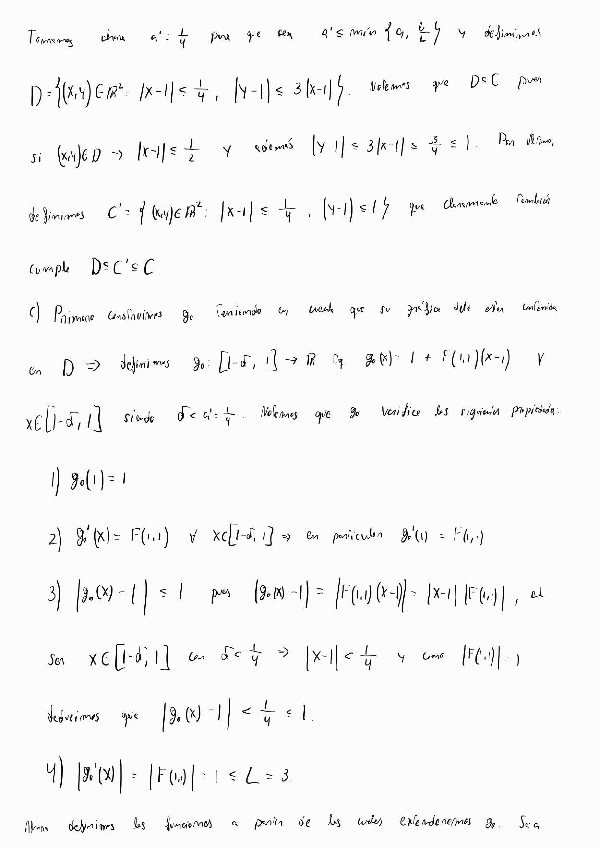 Tomamos ahora a' = 1/4 para que sea a' ≤ mín {a, b/L} y definimos
D = {(x,y) ∈ ℝ² : |x-1| ≤ 1/4 , |y-1| ≤ 3|x-1|}. Notemos que D ⊆ C pues
si (x,y) ∈ D → |x-1| ≤ 1/2 y además |y-1| ≤ 3|x-1| ≤ 3/4 ≤ 1. Por último,
definimos C' = {(x,y) ∈ ℝ² : |x-1| ≤ 1/4 , |y-1| ≤ 1} que claramente también
cumple D ⊆ C' ⊆ C
C) Primero construimos g₀ teniendo en cuenta que su gráfica debe estar contenida
en D ⇒ definimos g₀: [1-δ, 1] → ℝ tq g₀(x) = 1 + F(1,1)(x-1) ∀
x ∈ [1-δ, 1] siendo δ < a' = 1/4. Notemos que g₀ verifica las siguientes propiedades:
1) g₀(1) = 1
2) g₀'(x) = F(1,1) ∀ x ∈ [1-δ, 1] ⇒ en particular g₀'(1) = F(1,1)
3) |g₀(x) - 1| ≤ 1 pues |g₀(x) - 1| = |F(1,1)(x-1)| = |x-1| |F(1,1)|, al
ser x ∈ [1-δ, 1] con δ < 1/4 ⇒ |x-1| < 1/4 y como |F(1,1)| = 1
deducimos que |g₀(x) - 1| < 1/4 ≤ 1.
4) |g₀'(x)| = |F(1,1)| = 1 ≤ L = 3
Ahora definimos las funciones a partir de las cuales extenderemos g₀. Sea